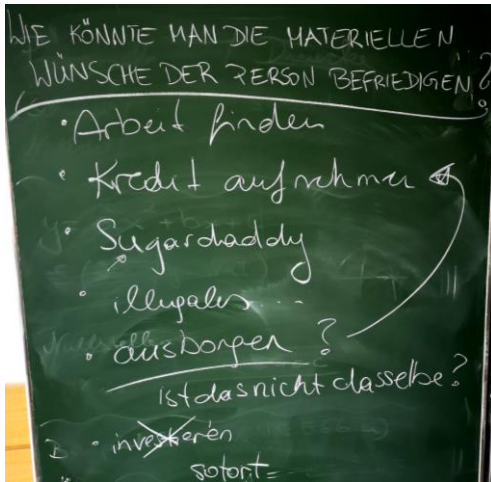 WIE KÖNNTE MAN DIE MATERIELLEN
WÜNSCHE DER PERSON BEFRIEDIGEN?
• Arbeit finden
• Kredit aufnehmen
• Sugardaddy
• illegales ...
• ausborgen ?
ist das nicht dasselbe?
• investieren
sofort=